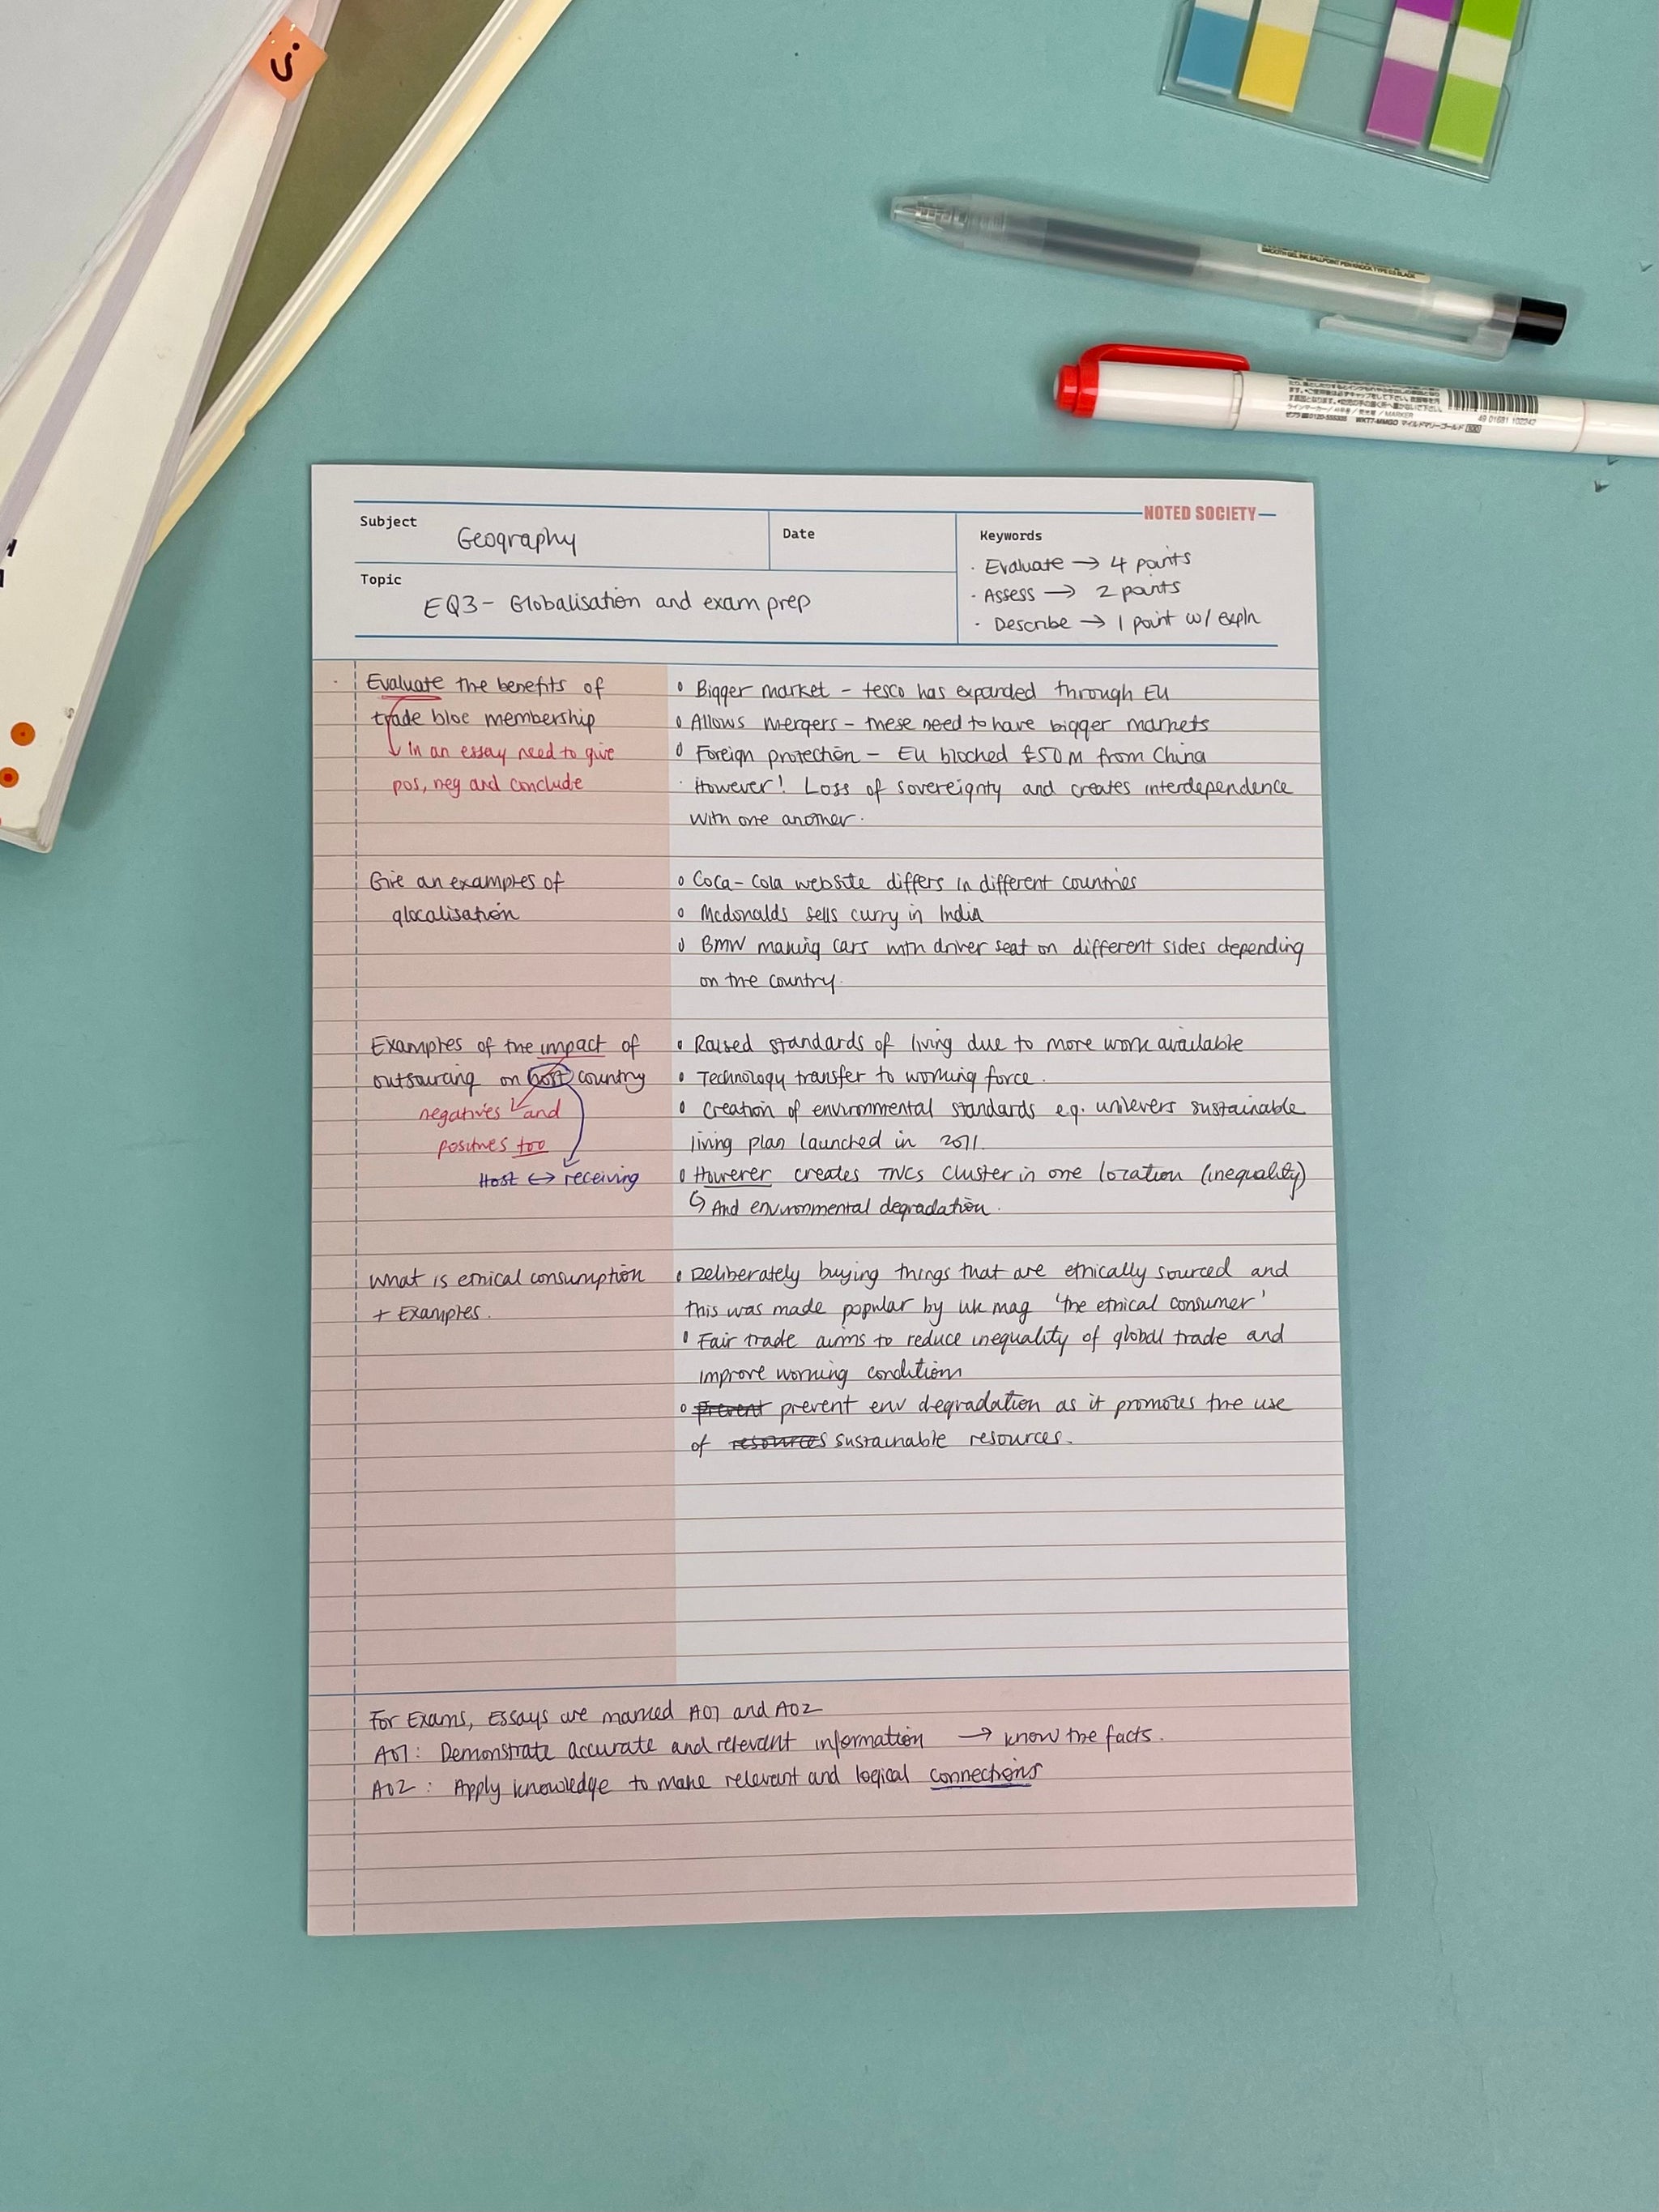 SMOOTH GEL INK BALLPOINT PEN KNOCK TYPE 0.5 BLACK
49 01681 102242
NOTED SOCIETY
Subject
Geography
Date
Keywords
· Evaluate → 4 points
· Assess → 2 points
· Describe → 1 point w/ expln
Topic
EQ3 - Globalisation and exam prep
Evaluate the benefits of
trade bloc membership
In an essay need to give
pos, neg and conclude
Bigger market - tesco has expanded through EU
Allows mergers - these need to have bigger markets
Foreign protection - EU blocked £50M from China
However! Loss of sovereignty and creates interdependence
with one another.
Give an examples of
glocalisation
Coca-Cola website differs in different countries
Mcdonalds sells curry in India
BMW making cars with driver seat on different sides depending
on the country.
Examples of the impact of
outsourcing on host country
negatives and
positives too
Host ↔ receiving
Raised standards of living due to more work available
Technology transfer to working force.
Creation of environmental standards e.g. unilevers sustainable
living plan launched in 2011.
However creates TNCs cluster in one location (inequality)
And environmental degradation.
What is ethical consumption
+ Examples.
Deliberately buying things that are ethically sourced and
this was made popular by uk mag 'the ethical consumer'
Fair trade aims to reduce inequality of global trade and
improve working conditions
Prevent prevent env degradation as it promotes the use
of resources sustainable resources.
For Exams, Essays are marked A01 and A02
A01: Demonstrate accurate and relevant information → know the facts.
A02: Apply knowledge to make relevant and logical connections